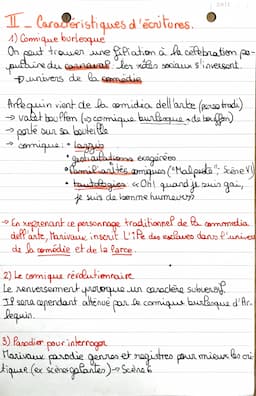 II - Caractéristiques d'écritures.
1) Comique burlesque
On peut trouver une filiation à la célébration po-
pulaire du carnaval les rôles sociaux s'inversent.
→ univers de la comédie
Arlequin vient de la comidia dell'arte (perso trade)
→ valet bouffon (↔ comique burlesque → de bouffon)
→ porté sur sa bouteille
→ comique : • lazzis
• gesticulations exagérées
• familiarités comiques ("Malpeste", Scène VI)
• tautologies : « Oh! quand je suis gai,
je suis de bonne humeur »
→ En reprenant ce personnage traditionnel de la commedia
dell'arte, Marivaux inscrit L'île des esclaves dans l'univers
de la comédie et de la farce.
2) Le comique révolutionnaire
Le renversement provoque un caractère subversif.
Il sera cependant atténué par le comique burlesque d'Ar-
lequin.
3) Parodier pour interroger
Marivaux parodie genres et registres pour mieux les cri-
tiquer (ex scènes galantes) → Scène 6